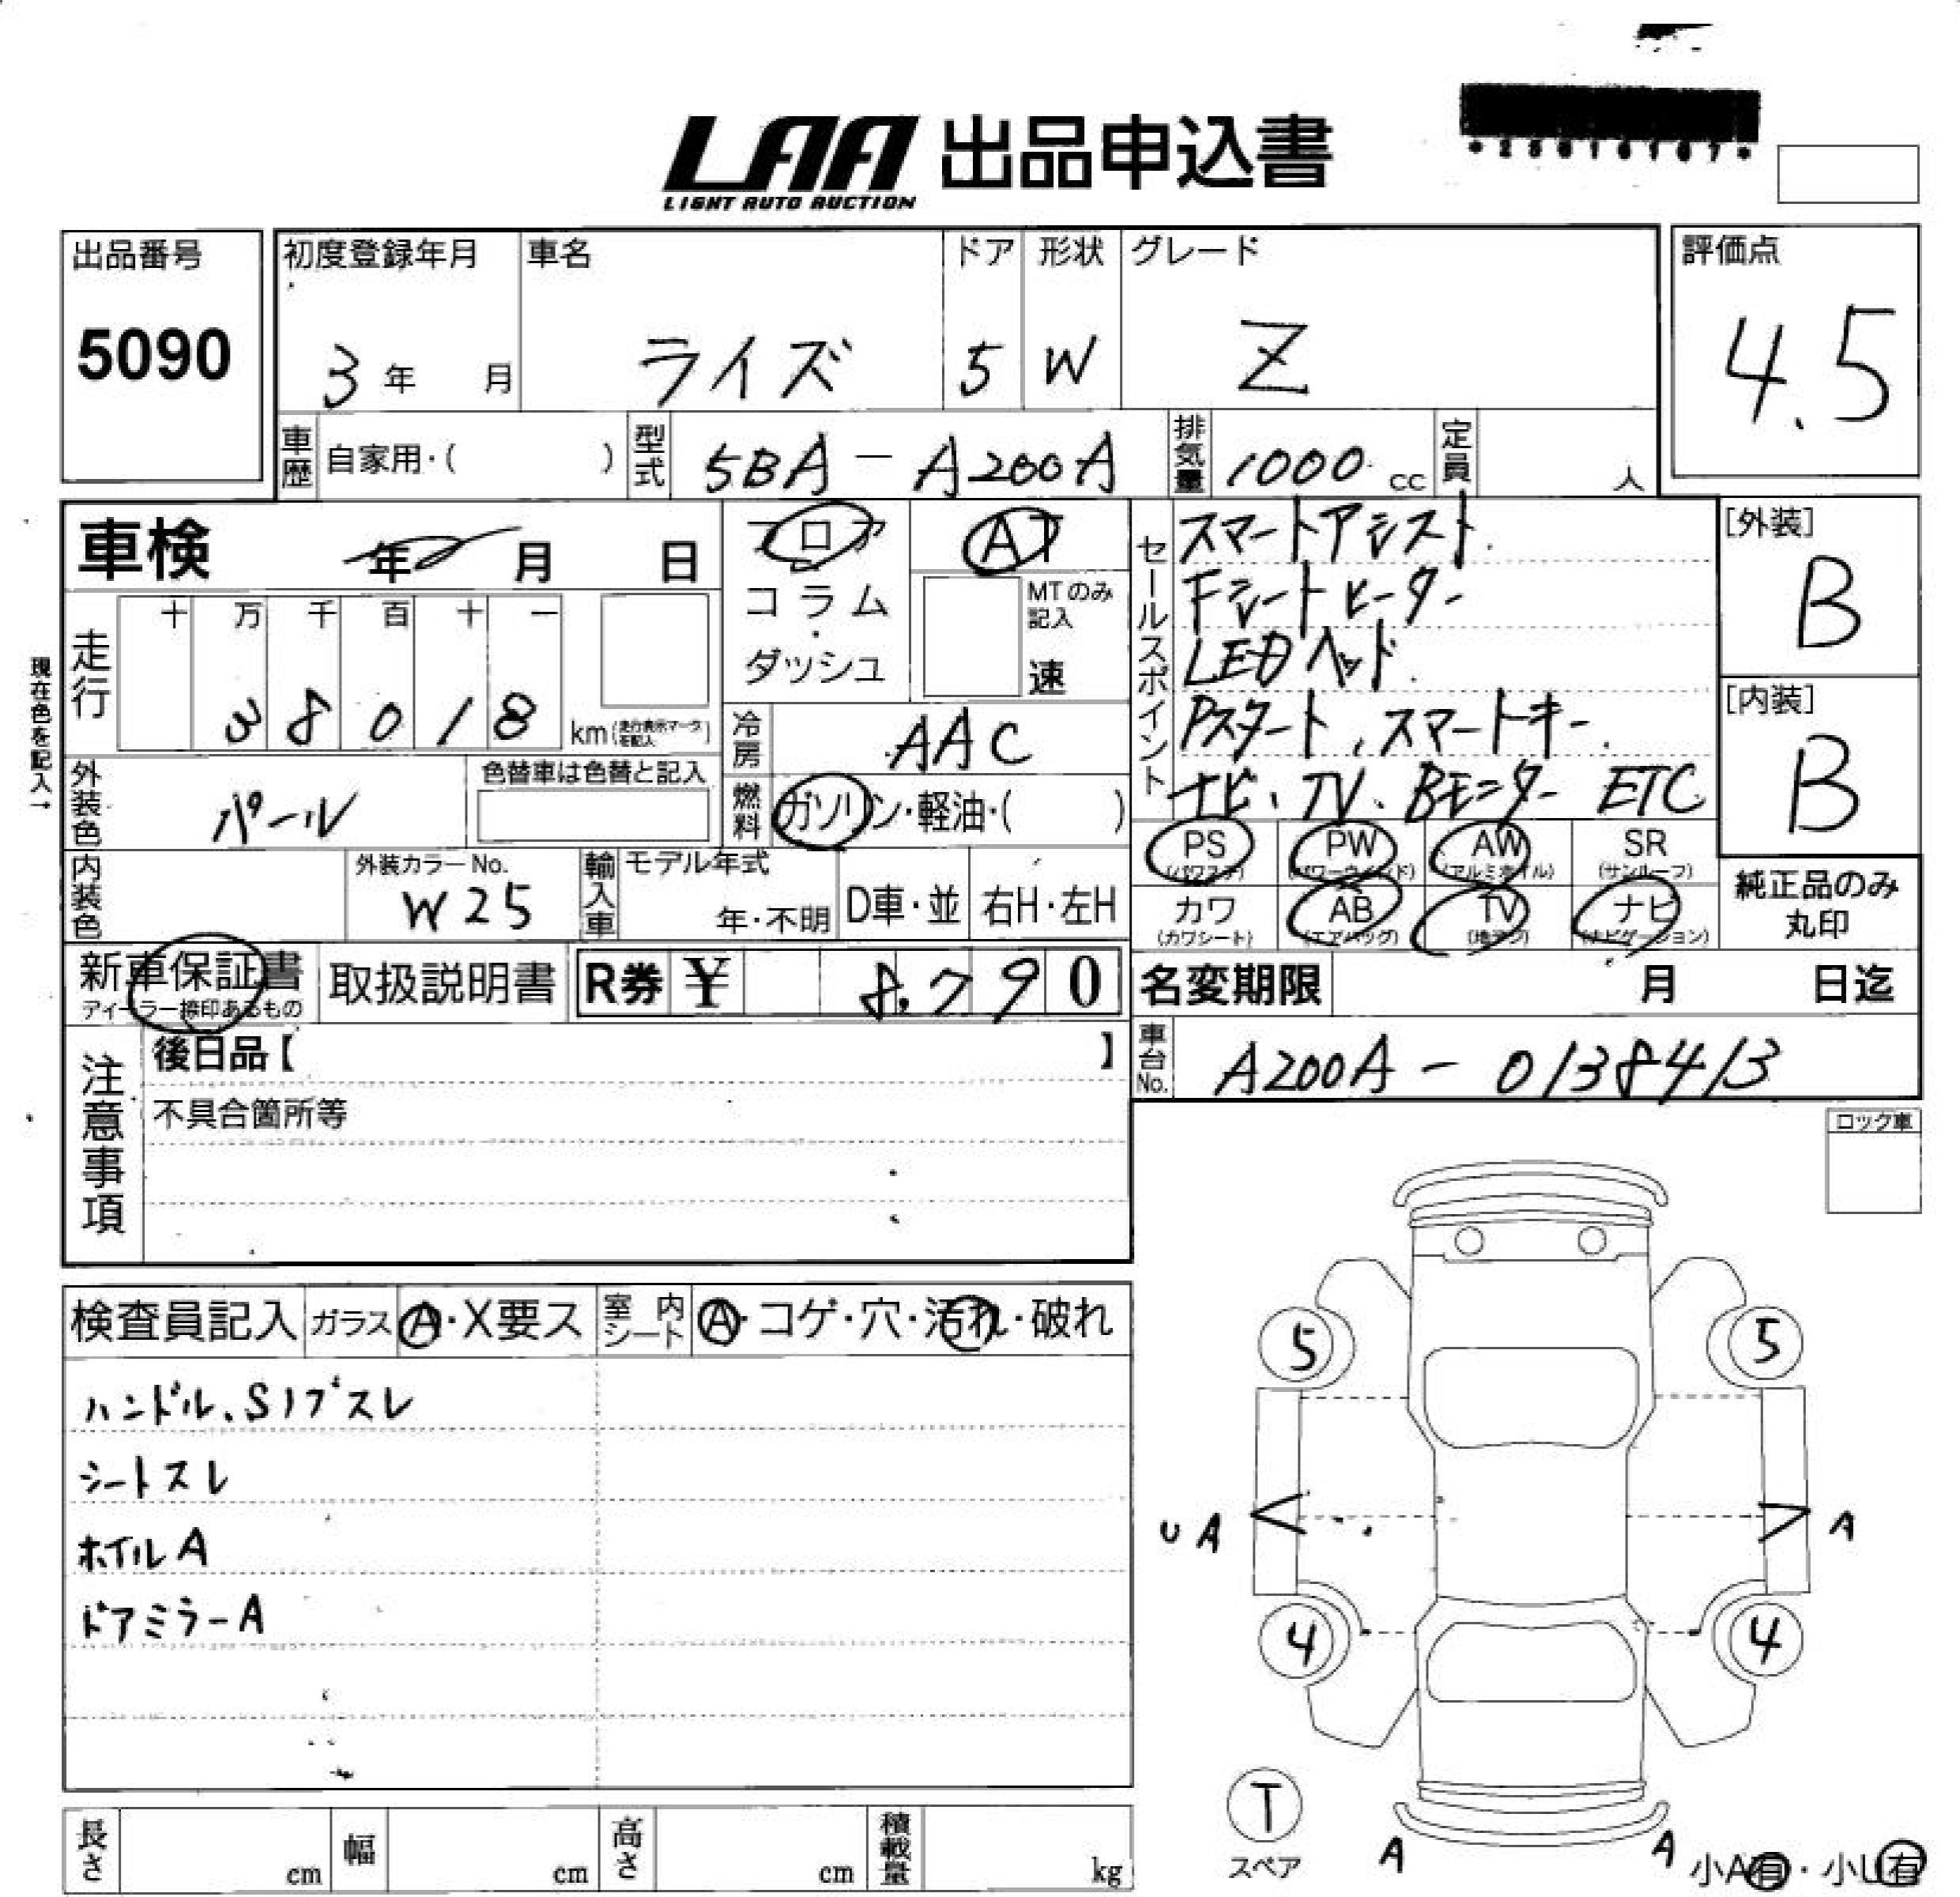 LAA 出品申込書
LIGHT AUTO AUCTION
*25016107*
出品番号
5090
初度登録年月
3年 月
車名
ライズ
ドア
5
形状
W
グレード
Z
評価点
4.5
車歴 自家用・( )
型式 5BA-A200A
排気量 1000 cc
定員 人
車検 年 月 日
フロア
コラム
・
ダッシュ
AT
MTのみ
記入
速
セールスポイント
スマートアシスト
Fシートヒーター
LEDヘッド
Pスタート、スマートキー
ナビ、TV、Bモニター ETC
[外装]
B
[内装]
B
現在色を記入→
走行
十 万 千 百 十 一
3 8 0 1 8 km(走行表示マークを記入)
冷房 AAC
外装色 パール
色替車は色替と記入
燃料 ガソリン・軽油・( )
内装色
外装カラーNo.
W25
輸入車 モデル年式
年・不明
D車・並
右H・左H
PS
(パワステ)
PW
(パワーウインド)
AW
(アルミホイル)
SR
(サンルーフ)
カワ
(カワシート)
AB
(エアバッグ)
TV
(地デジ)
ナビ
(ナビゲーション)
純正品のみ
丸印
新車保証書
ディーラー捺印あるもの
取扱説明書
R券 ¥ 8,790
名変期限 月 日迄
車台No. A200A-0138413
注意事項
後日品【 】
不具合箇所等
ロック車
検査員記入 ガラス A・X要ス
室内シート A・コゲ・穴・汚れ・破れ
ハンドル、Sノブスレ
シートスレ
ホイルA
ドアミラーA
5
5
UA
A
4
4
T
スペア
A
A
小A有・小U有
長さ cm
幅 cm
高さ cm
積載量 kg